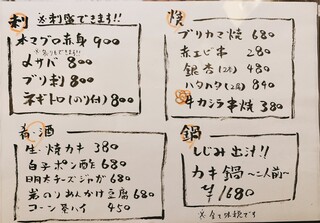 刺 ※刺盛できます!!
本マグロ赤身 900
〆サバ 800
ブリ刺 800
ネギトロ(のり付) 800
肴・酒
生・焼カキ 380
白子ポン酢 680
明太チーズじゃが 680
岩のりあんかけ豆腐 680
コーン茶ハイ 450
焼
ブリカマ焼 680
赤エビ串 280
銀杏 480
ハタハタ(2本) 480
牛カシラ串焼 380
鍋
しじみ出汁!!
カキ鍋 〜二人前〜
¥1680
※全て税抜です